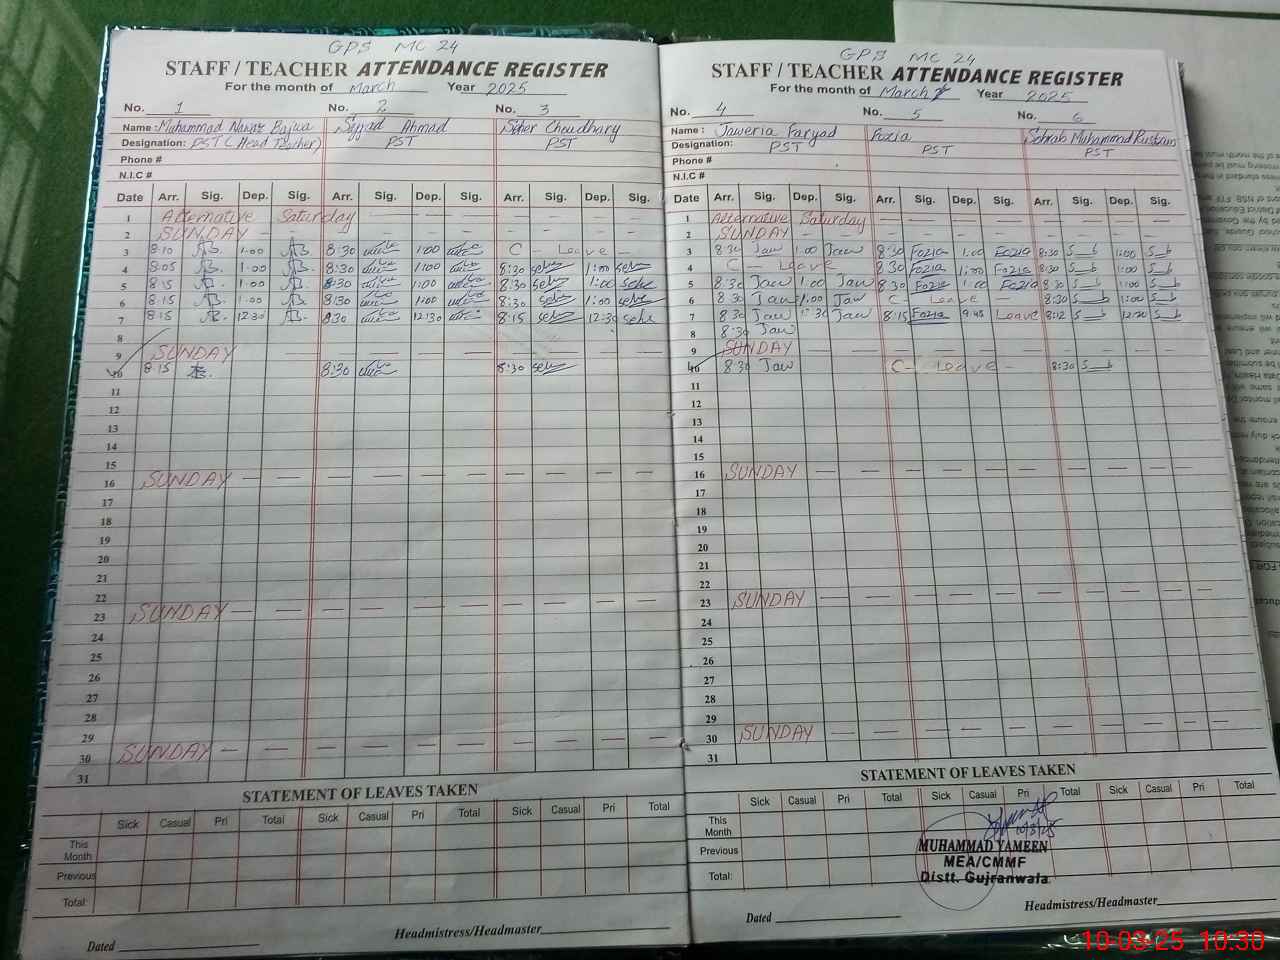 GPS MC 24
STAFF / TEACHER ATTENDANCE REGISTER
For the month of March Year 2025
No. 1 No. 2 No. 3
Name: Muhammad Nawaz Bajwa Sajjad Ahmad Seher Choudhary
Designation: PST (Head Teacher) PST PST
Phone #
N.I.C #
Date Arr. Sig. Dep. Sig. Arr. Sig. Dep. Sig. Arr. Sig. Dep. Sig.
1 Alternative Saturday — — — — — — —
2 SUNDAY — — — — — — — —
3 8:10 1:00 8:30 1:00 C - Leave -
4 8:05 1:00 8:30 1:00 8:30 seher 1:00 sehr
5 8:15 1:00 8:30 1:00 8:30 sehr 1:00 sehr
6 8:15 1:00 8:30 1:00 8:30 sehr 1:00 sehr
7 8:15 12:30 8:30 12:30 8:15 sehr 12:30 sehr
8
9 SUNDAY — — — — — — — —
10 8:15 8:30 8:30 sehr
11
12
13
14
15
16 SUNDAY — — — — — — — — — —
17
18
19
20
21
22
23 SUNDAY — — — — — — — — — —
24
25
26
27
28
29
30 SUNDAY — — — — — — — — — —
31
STATEMENT OF LEAVES TAKEN
Sick Casual Pri Total Sick Casual Pri Total Sick Casual Pri Total
This Month
Previous
Total:
Dated Headmistress/Headmaster
GPS MC 24
STAFF / TEACHER ATTENDANCE REGISTER
For the month of March Year 2025
No. 4 No. 5 No. 6
Name: Jaweria Faryad Fozia Sohrab Muhammad Rustam
Designation: PST PST PST
Phone #
N.I.C #
Date Arr. Sig. Dep. Sig. Arr. Sig. Dep. Sig. Arr. Sig. Dep. Sig.
1 Alternative Saturday — — — — — — —
2 SUNDAY — — — — — — — —
3 8:30 Jaw 1:00 Jaw 8:30 Fozia 1:00 Fozia 8:30 1:00
4 C - Leave 8:30 Fozia 1:00 Fozia 8:30 1:00
5 8:30 Jaw 1:00 Jaw 8:30 Fozia 1:00 Fozia 8:30 1:00
6 8:30 Jaw 1:00 Jaw C - Leave - 8:30 1:00
7 8:30 Jaw 12:30 Jaw 8:15 Fozia 9:45 Leave 8:12 12:30
8 8:30 Jaw
9 SUNDAY — — — — — — — —
10 8:30 Jaw C - Leave - 8:30
11
12
13
14
15
16 SUNDAY — — — — — — — — — —
17
18
19
20
21
22
23 SUNDAY — — — — — — — — — —
24
25
26
27
28
29
30 SUNDAY — — — — — — — — — —
31
STATEMENT OF LEAVES TAKEN
Sick Casual Pri Total Sick Casual Pri Total Sick Casual Pri Total
This Month
Previous
Total:
10/3/25
MUHAMMAD YAMEEN
MEA/CMMF
Distt. Gujranwala
Dated Headmistress/Headmaster
10-03-25 10:30